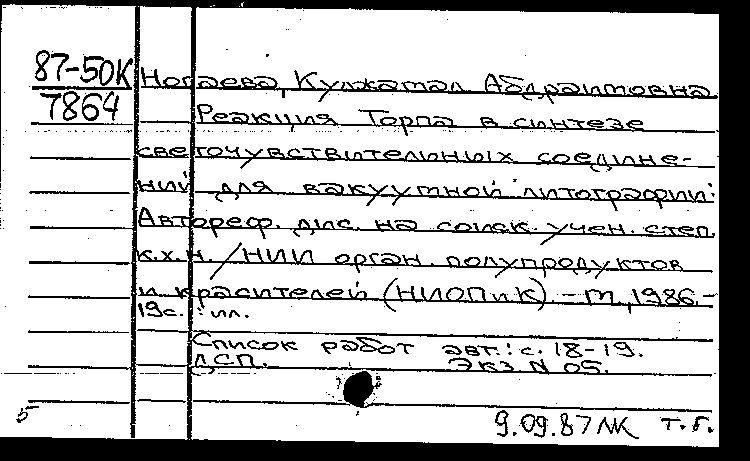 87-50К Ногаева, Кулжатал Абдраитовна
7864 Реакция Торпа в синтезе
светочувствительных соедине-
ний для вакуутной литографии:
Автореф. дис. на соиск. учен. степ.
к.х.н. /НИИ орган. полупродуктов
и красителей (НИОПиК). - М., 1986. -
19с. : ил.
Список работ авт.: с. 18-19.
ДСП. Экз. N 05.
5
9.09.87 ЛК т.г.